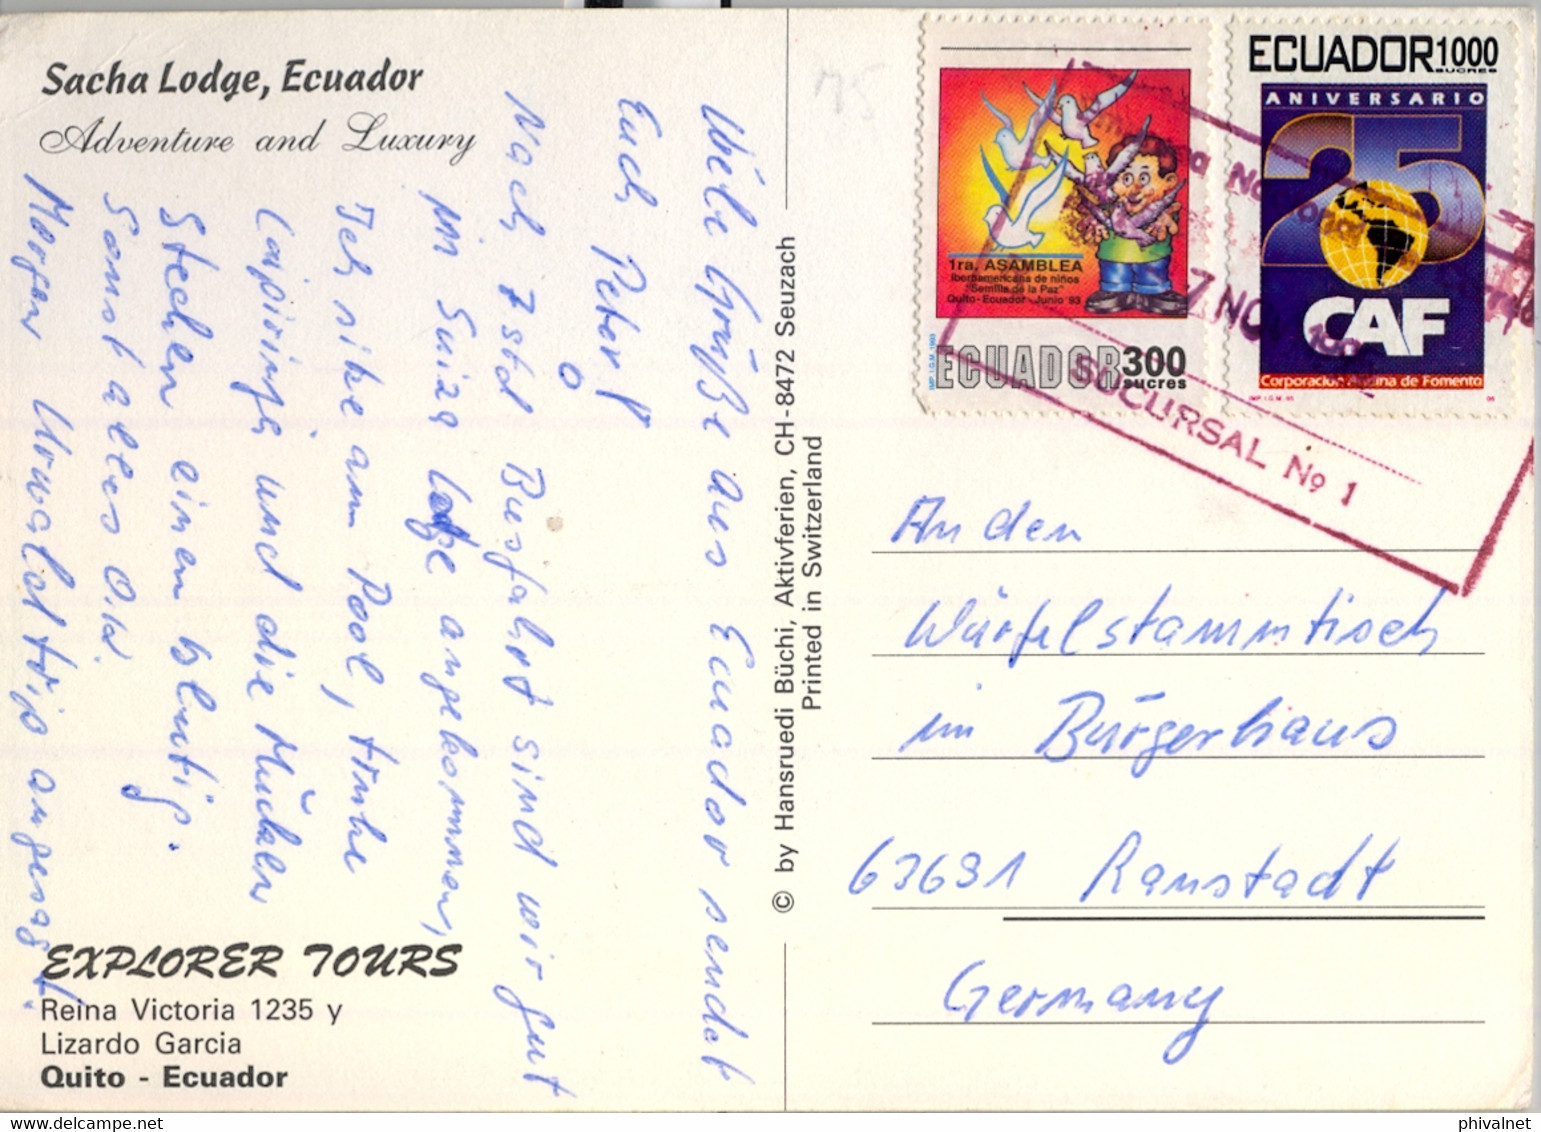 Sacha Lodge, Ecuador
Adventure and Luxury
Viele Grüße aus Ecuador sendet
Euch Peter
Nach 7 std Busfahrt sind wir gut
im angekommen,
Ich sitze am Pool, trinke
Caipirinja und die Mücken
Stechen einen blutig.
Sonst alles
Morgen Urwaldtrip angesagt.
EXPLORER TOURS
Reina Victoria 1235 y
Lizardo Garcia
Quito - Ecuador
© by Hansruedi Büchi, Aktivferien, CH-8472 Seuzach
Printed in Switzerland
1ra. ASAMBLEA
Iberoamericana de niños
"Semilla de la Paz"
Quito - Ecuador - Junio '93
ECUADOR 300
sucres
IMP. I.G.M. 1993
ECUADOR 1000
SUCRES
ANIVERSARIO
25
CAF
Corporación Andina de Fomento
7 NOV
SUCURSAL Nº 1
An den
Würfelstammtisch
im Bürgerhaus
63691 Ranstadt
Germany
phivalnet